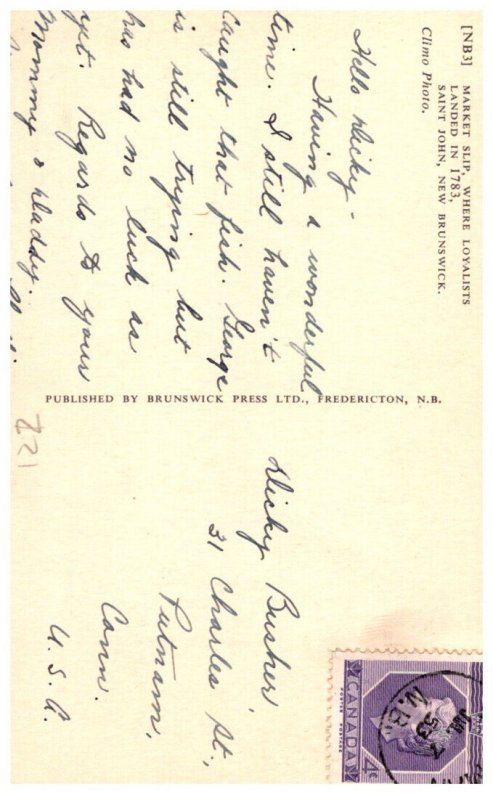 [NB3] MARKET SLIP, WHERE LOYALISTS
LANDED IN 1783,
SAINT JOHN, NEW BRUNSWICK.
Climo Photo.
Hello Dicky -
Having a wonderful
time. I still haven't
caught that fish. George
is still trying but
has had no luck as
yet. Regards to your
Mommy & Daddy.
PUBLISHED BY BRUNSWICK PRESS LTD., FREDERICTON, N.B.
221
Dicky Busher,
31 Charles St.,
Putnam,
Conn.
U.S.A.
POSTES POSTAGE
CANADA
4¢
N.B.